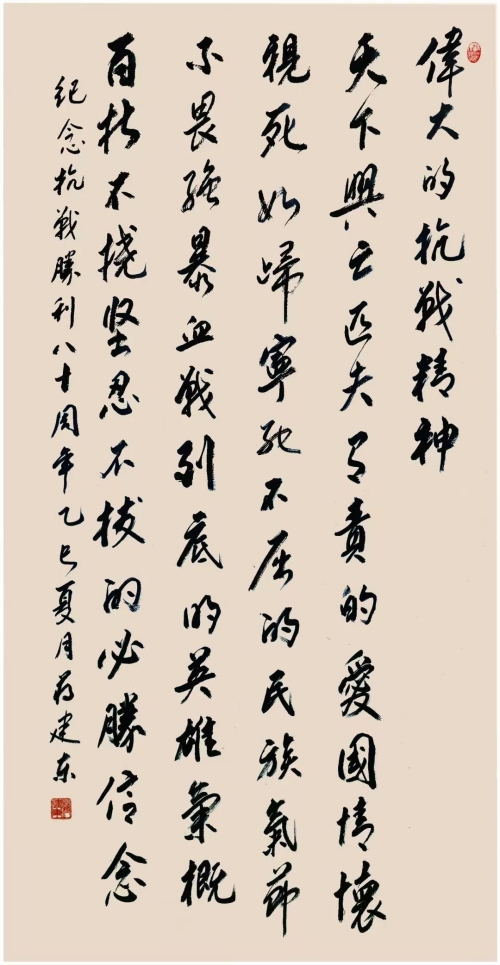 偉大的抗战精神
天下興亡匹夫有責的愛國情懷
視死如歸寧死不屈的民族氣節
不畏強暴血戰到底的英雄氣概
百折不撓坚忍不拔的必勝信念
纪念抗戰勝利八十周年乙巳夏月蒋建东